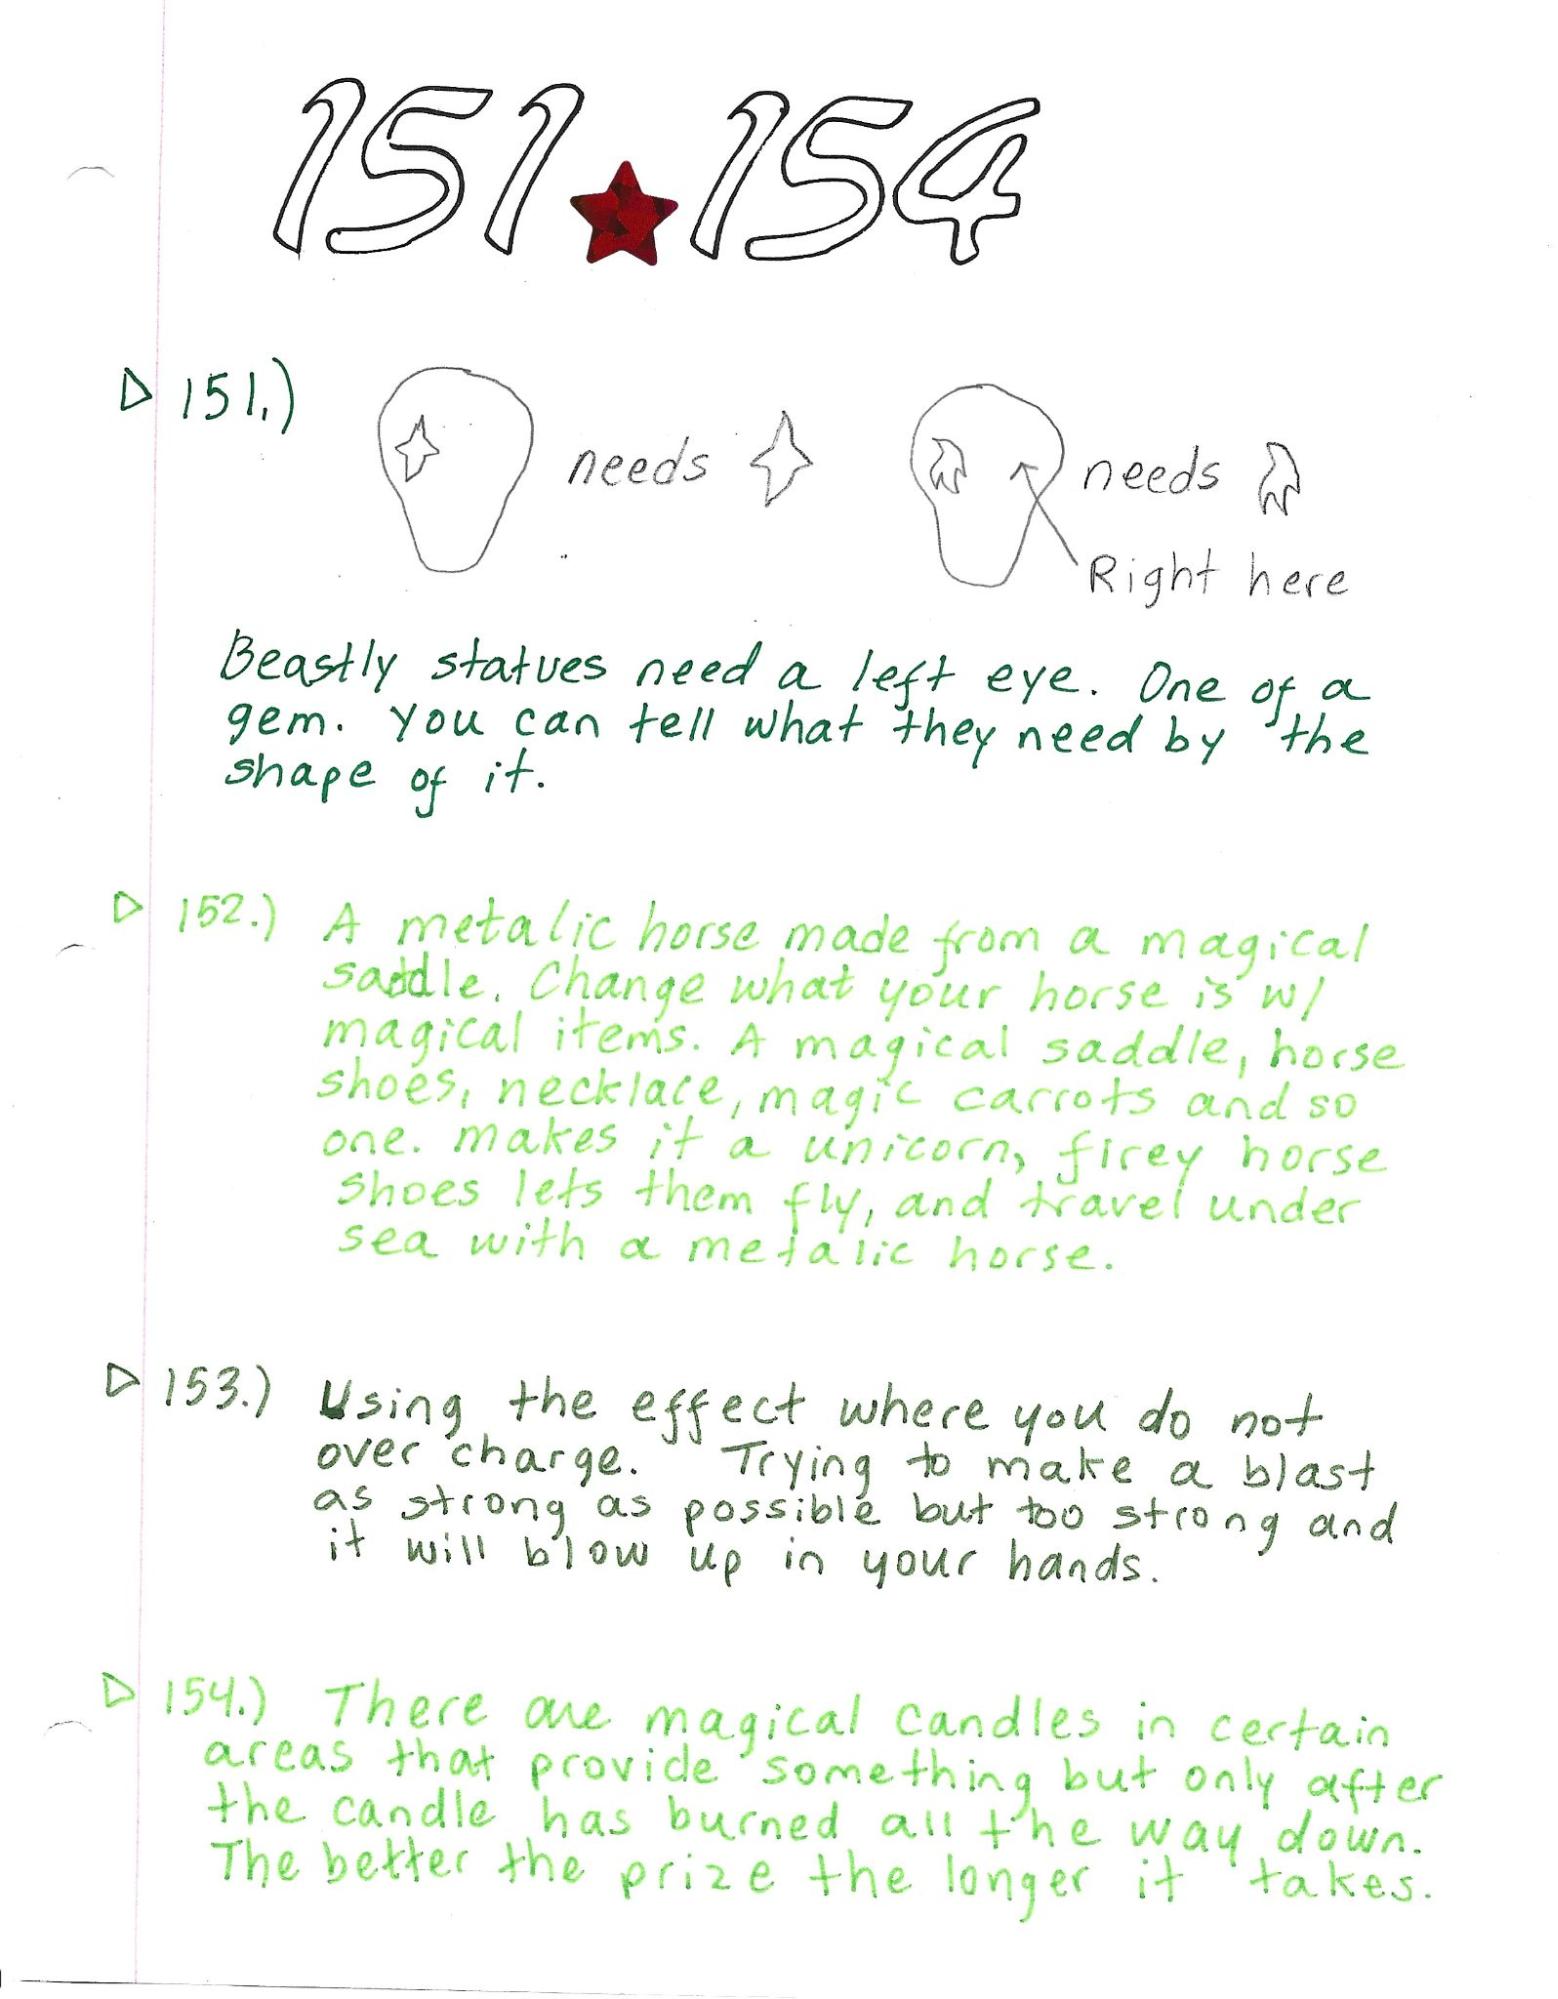 151 ★ 154
151.)
needs
needs
Right here
Beastly statues need a left eye. One of a
gem. You can tell what they need by the
shape of it.
152.) A metalic horse made from a magical
saddle. Change what your horse is w/
magical items. A magical saddle, horse
shoes, necklace, magic carrots and so
one. makes it a unicorn, firey horse
shoes lets them fly, and travel under
sea with a metalic horse.
153.) Using the effect where you do not
over charge. Trying to make a blast
as strong as possible but too strong and
it will blow up in your hands.
154.) There are magical candles in certain
areas that provide something but only after
the candle has burned all the way down.
The better the prize the longer it takes.